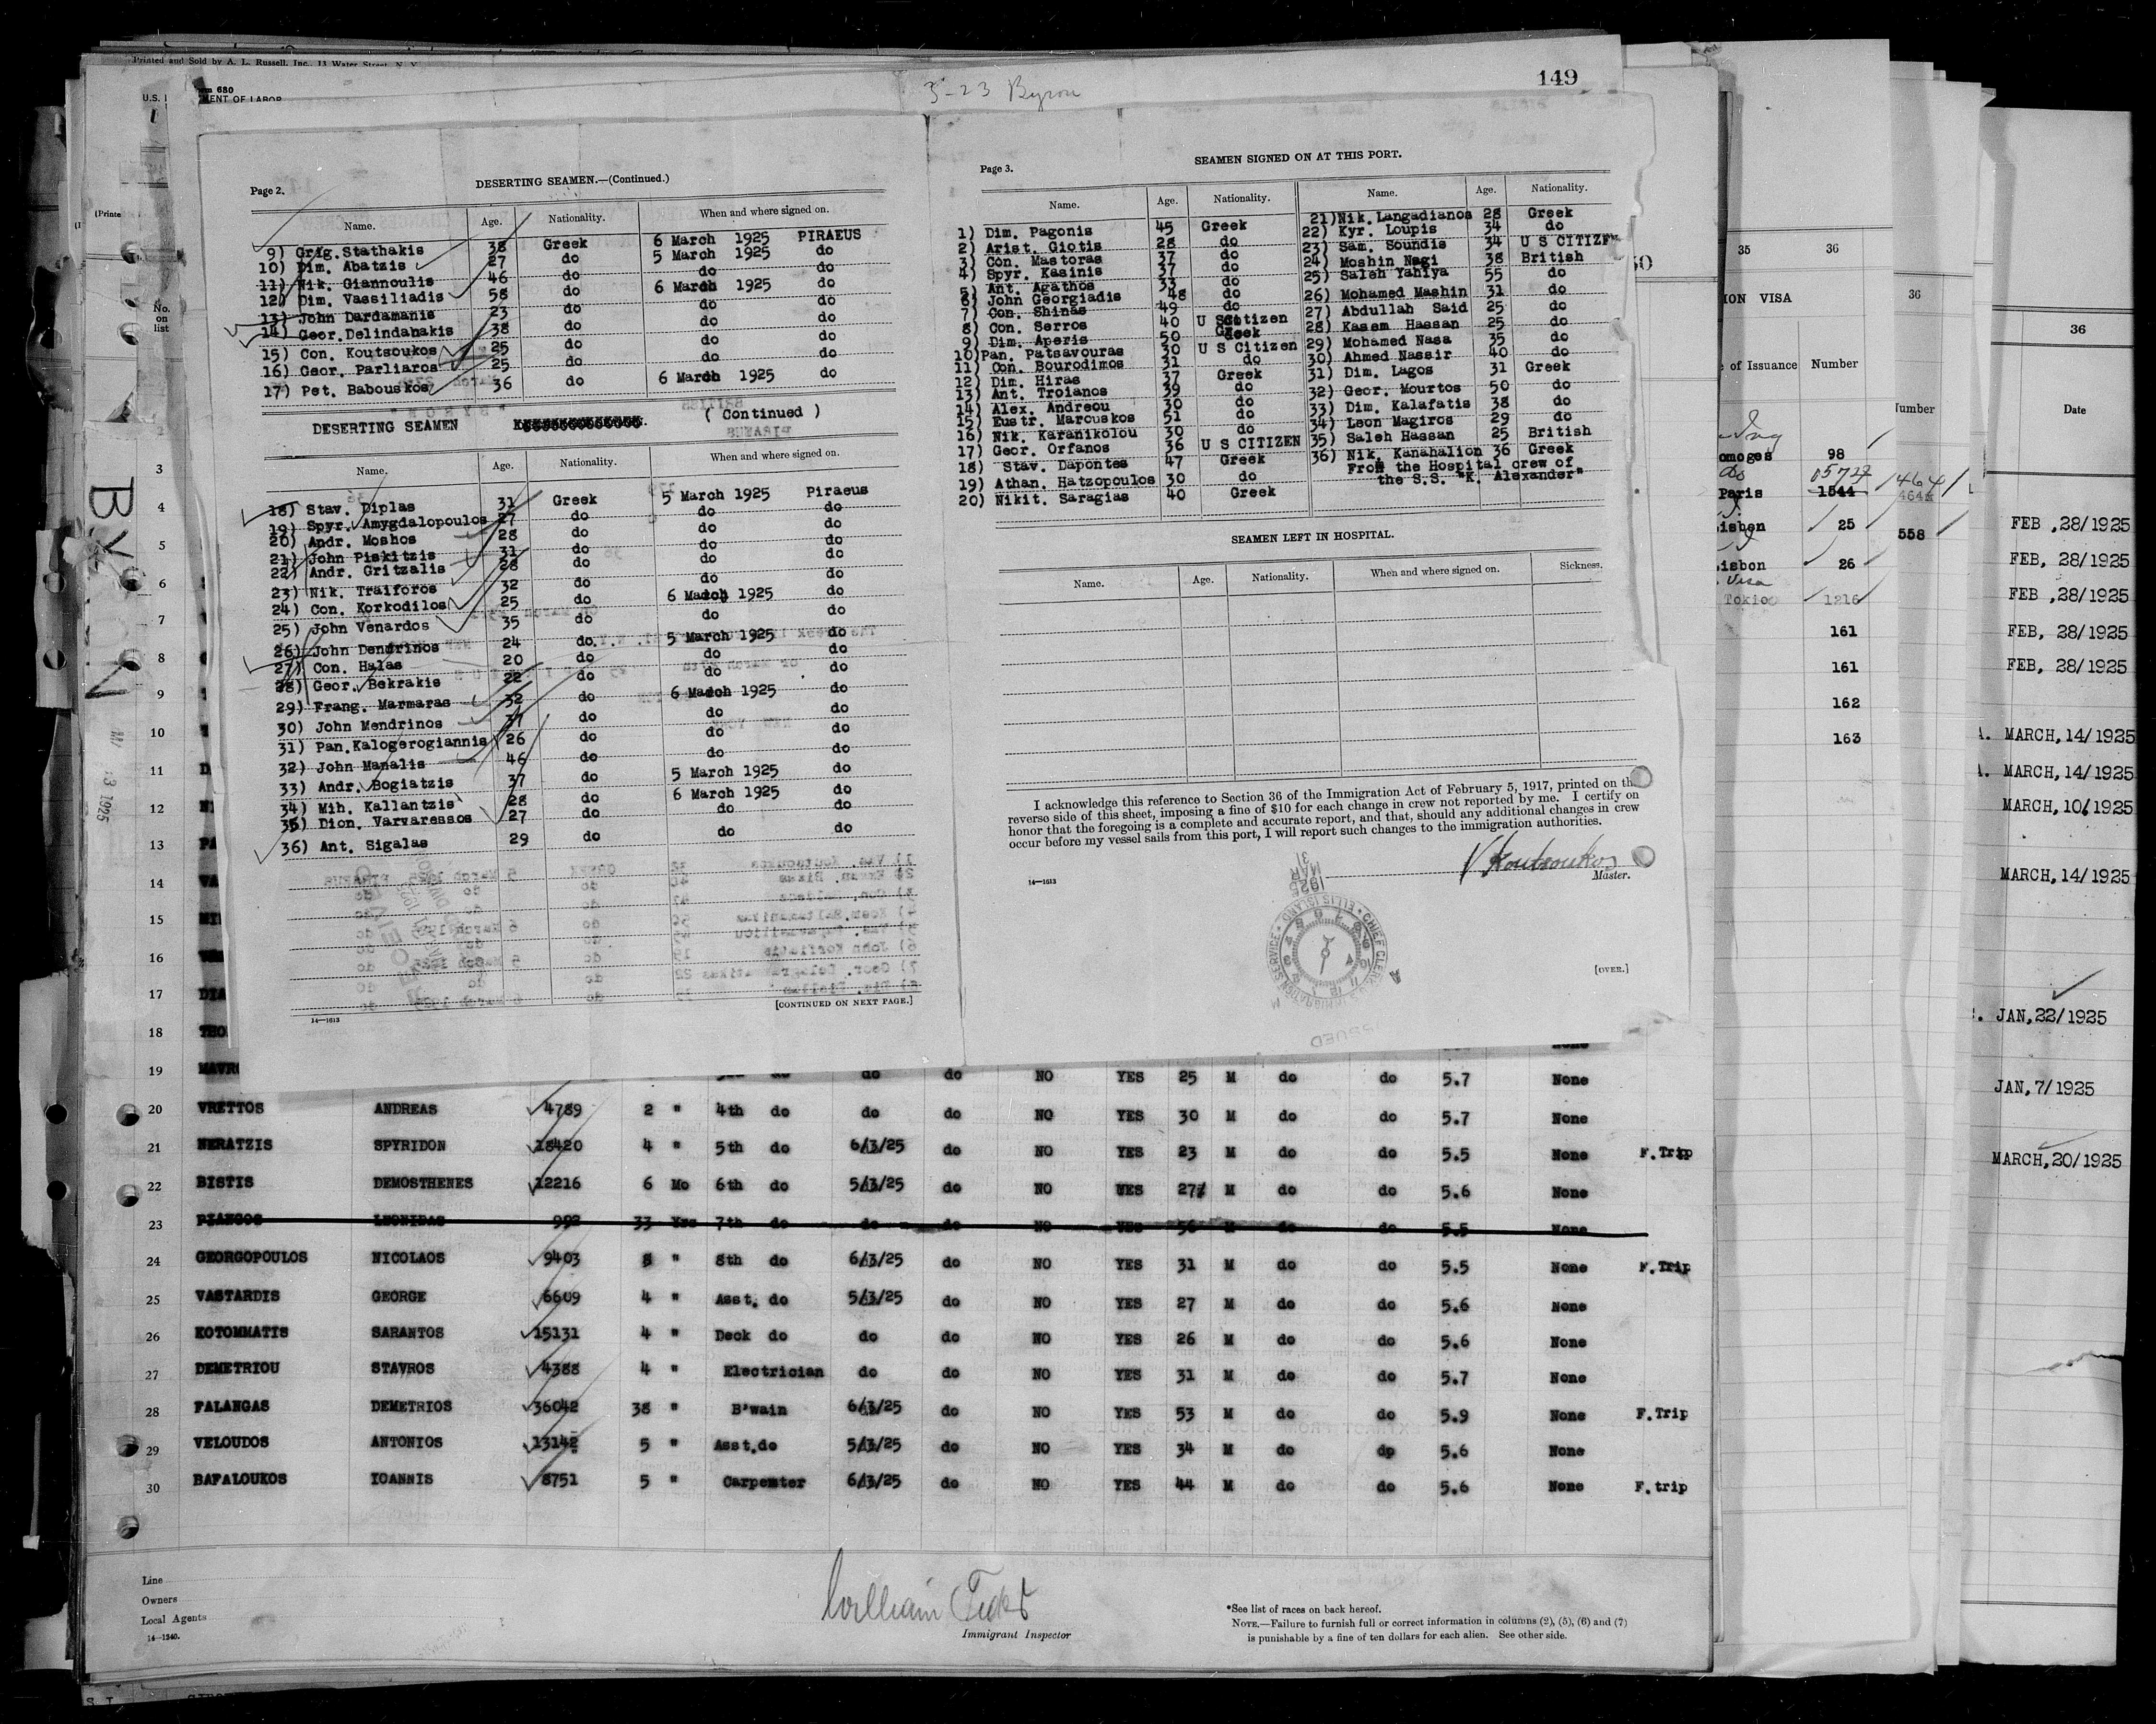 Printed and Sold by A. L. Russell, Inc., 13 Water Street, N. Y.
680
U.S.
MENT OF LABOR
3-23 Byron
149
Page 2.
DESERTING SEAMEN.—(Continued.)
Name. Age. Nationality. When and where signed on.
9) Grig. Stathakis 38 Greek 6 March 1925 PIRAEUS
10) Dim. Abatzis 27 do 5 March 1925 do
11) Nik. Giannoulis 46 do do do
12) Dim. Vassiliadis 58 do 6 March 1925 do
13) John Dardamanis 23 do do do
14) Geor. Delindahakis 38 do do do
15) Con. Koutsoukos 25 do do do
16) Geor. Parliaros 25 do do do
17) Pet. Babouskos 36 do 6 March 1925 do
DESERTING SEAMEN ( Continued )
Name. Age. Nationality. When and where signed on.
18) Stav. Diplas 31 Greek 5 March 1925 Piraeus
19) Spyr. Amygdalopoulos 27 do do do
20) Andr. Moshos 28 do do do
21) John Piskitzis 31 do do do
22) Andr. Gritzalis 28 do do do
23) Nik. Traiforos 32 do do do
24) Con. Korkodilos 25 do 6 March 1925 do
25) John Venardos 35 do do do
26) John Dendrinos 24 do 5 March 1925 do
27) Con. Halas 20 do do do
28) Geor. Bekrakis 22 do do do
29) Frang. Marmaras 32 do 6 March 1925 do
30) John Mendrinos 37 do do do
31) Pan. Kalogerogiannis 26 do do do
32) John Manalis 46 do do do
33) Andr. Bogiatzis 37 do 5 March 1925 do
34) Mih. Kallantzis 28 do 6 March 1925 do
35) Dion. Varvaressos 27 do do do
36) Ant. Sigalas 29 do do do
[CONTINUED ON NEXT PAGE.]
14—1613
Page 3.
SEAMEN SIGNED ON AT THIS PORT.
Name. Age. Nationality. Name. Age. Nationality.
1) Dim. Pagonis 45 Greek
2) Arist. Giotis 28 do
3) Con. Mastoras 37 do
4) Spyr. Kasinis 37 do
5) Ant. Agathos 33 do
6) John Georgiadis 48 do
7) Con. Shinas 49 do
8) Con. Serros 40 U S Citizen
9) Dim. Aperis 50 Greek
10) Pan. Patsavouras 30 U S Citizen
11) Con. Bourodimos 31 do
12) Dim. Hiras 37 Greek
13) Ant. Troianos 39 do
14) Alex. Andreou 30 do
15) Eustr. Marcuskos 51 do
16) Nik. Karanikolou 30 do
17) Geor. Orfanos 36 U S CITIZEN
18) Stav. Dapontes 47 Greek
19) Athan. Hatzopoulos 30 do
20) Nikit. Saragias 40 Greek
21) Nik. Langadianos 28 Greek
22) Kyr. Loupis 34 do
23) Sam. Soundis 34 U S CITIZEN
24) Moshin Nagi 38 British
25) Saleh Yahiya 55 do
26) Mohamed Mashin 31 do
27) Abdullah Said 25 do
28) Kasem Hassan 25 do
29) Mohamed Nasa 35 do
30) Ahmed Nassir 40 do
31) Dim. Lagos 31 Greek
32) Geor. Mourtos 50 do
33) Dim. Kalafatis 38 do
34) Leon Magiros 29 do
35) Saleh Hassan 25 British
36) Nik. Kanahalion 36 Greek
From the Hospital crew of
the S.S. "K. Alexander"
SEAMEN LEFT IN HOSPITAL.
Name. Age. Nationality. When and where signed on. Sickness.
I acknowledge this reference to Section 36 of the Immigration Act of February 5, 1917, printed on the
reverse side of this sheet, imposing a fine of $10 for each change in crew not reported by me. I certify on
honor that the foregoing is a complete and accurate report, and that, should any additional changes in crew
occur before my vessel sails from this port, I will report such changes to the immigration authorities.
Koutsoukos
Master.
14—1613
1925 MAR 31
IMMIGRATION SERVICE · ELLIS ISLAND · CHIEF CLERK
[OVER.]
No. on list
BYRON
3
4
5
6
7
8
9
10
11
12
13
14
15
16
17
18
19 do do NO YES 25 M do do 5.7 None
20 VRETTOS ANDREAS 4789 2 " 4th do do do NO YES 30 M do do 5.7 None
21 NERATZIS SPYRIDON 18420 4 " 5th do 6/3/25 do NO YES 23 M do do 5.5 None F.Trip
22 BISTIS DEMOSTHENES 12216 6 Mo 6th do 5/3/25 do NO YES 27 M do do 5.6 None
23 PIANGOS LEONIDAS 992 33 Yrs 7th do do do NO YES 56 M do do 5.5 None
24 GEORGOPOULOS NICOLAOS 9403 8 " 8th do 6/3/25 do NO YES 31 M do do 5.5 None F.Trip
25 VASTARDIS GEORGE 6609 4 " Asst. do 5/3/25 do NO YES 27 M do do 5.6 None
26 KOTOMMATIS SARANTOS 15131 4 " Deck do do do NO YES 26 M do do 5.6 None
27 DEMETRIOU STAVROS 4388 4 " Electrician do do NO YES 31 M do do 5.7 None
28 FALANGAS DEMETRIOS 36042 38 " B'wain 6/3/25 do NO YES 53 M do do 5.9 None F.Trip
29 VELOUDOS ANTONIOS 13142 5 " Asst.do 5/3/25 do NO YES 34 M do dp 5.6 None
30 BAFALOUKOS IOANNIS 8751 5 " Carpemter 6/3/25 do NO YES 44 M do do 5.6 None F.trip
Line
Owners
Local Agents
14—1240.
William
Immigrant Inspector
*See list of races on back hereof.
NOTE.—Failure to furnish full or correct information in columns (2), (5), (6) and (7)
is punishable by a fine of ten dollars for each alien. See other side.
35 36
ION VISA
of Issuance Number
98
Paris 1544
isbon 25
isbon 26
Visa
Tokio 1216
161
161
162
163
36
Number
558
36
Date
FEB ,28/1925
FEB, 28/1925
FEB ,28/1925
FEB, 28/1925
FEB, 28/1925
MARCH,14/1925
MARCH,14/1925
MARCH,10/1925
MARCH,14/1925
JAN,22/1925
JAN,7/1925
MARCH,20/1925